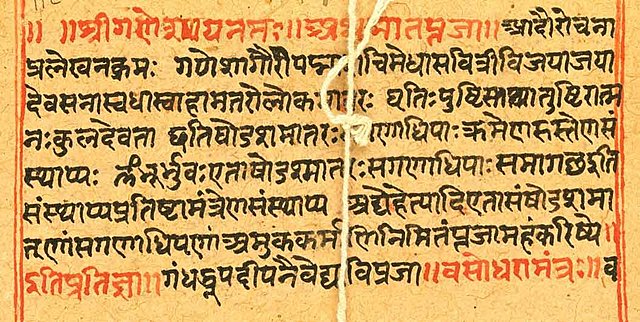 ॥ ॥श्रीगणेशायनमः॥अथमातृपूजा॥आदौरोचना
प्रलेखनक्रमः गणेशगौरीपद्माशचिमेधासवित्रीविजयाजया
देवसेनास्वधास्वाहामातरोलोकमातरः धृतिःपुष्टिस्तथातुष्टिरात्म
नःकुलदेवता एताषोडशमातरःसगणाधिपाःक्रमेणहस्तेणसं
स्थाप्यः ॐभूर्भुवःएताषोडशमातरःसगणाधिपाःसमागछइति
संस्थाप्यप्रतिष्टामंत्रेणसंस्थाप्य अद्येहेत्यादिएतासंषोडशमा
तृणांसगणाधिपाणांअमुककर्माणिनिमितंपूजामहंकरिष्ये॥
इतिप्रतिज्ञा॥गंधधूपदीपनैवेद्यविप्रजा॥वसोधरामंत्रः॥व